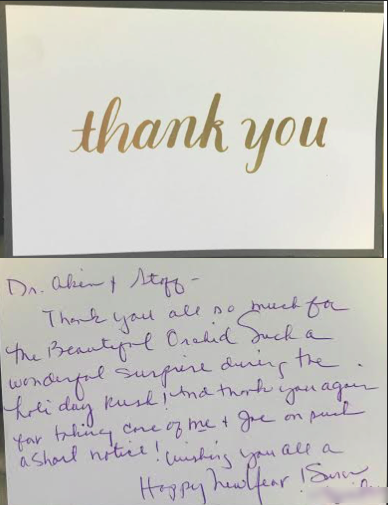 thank you
Dr. Akin & Staff -
Thank you all so much for
the Beautiful Orchid Such a
wonderful surprise during the
holiday Rush! And thank you again
for taking care of me & Joe on such
a short notice! Wishing you all a
Happy New Year!